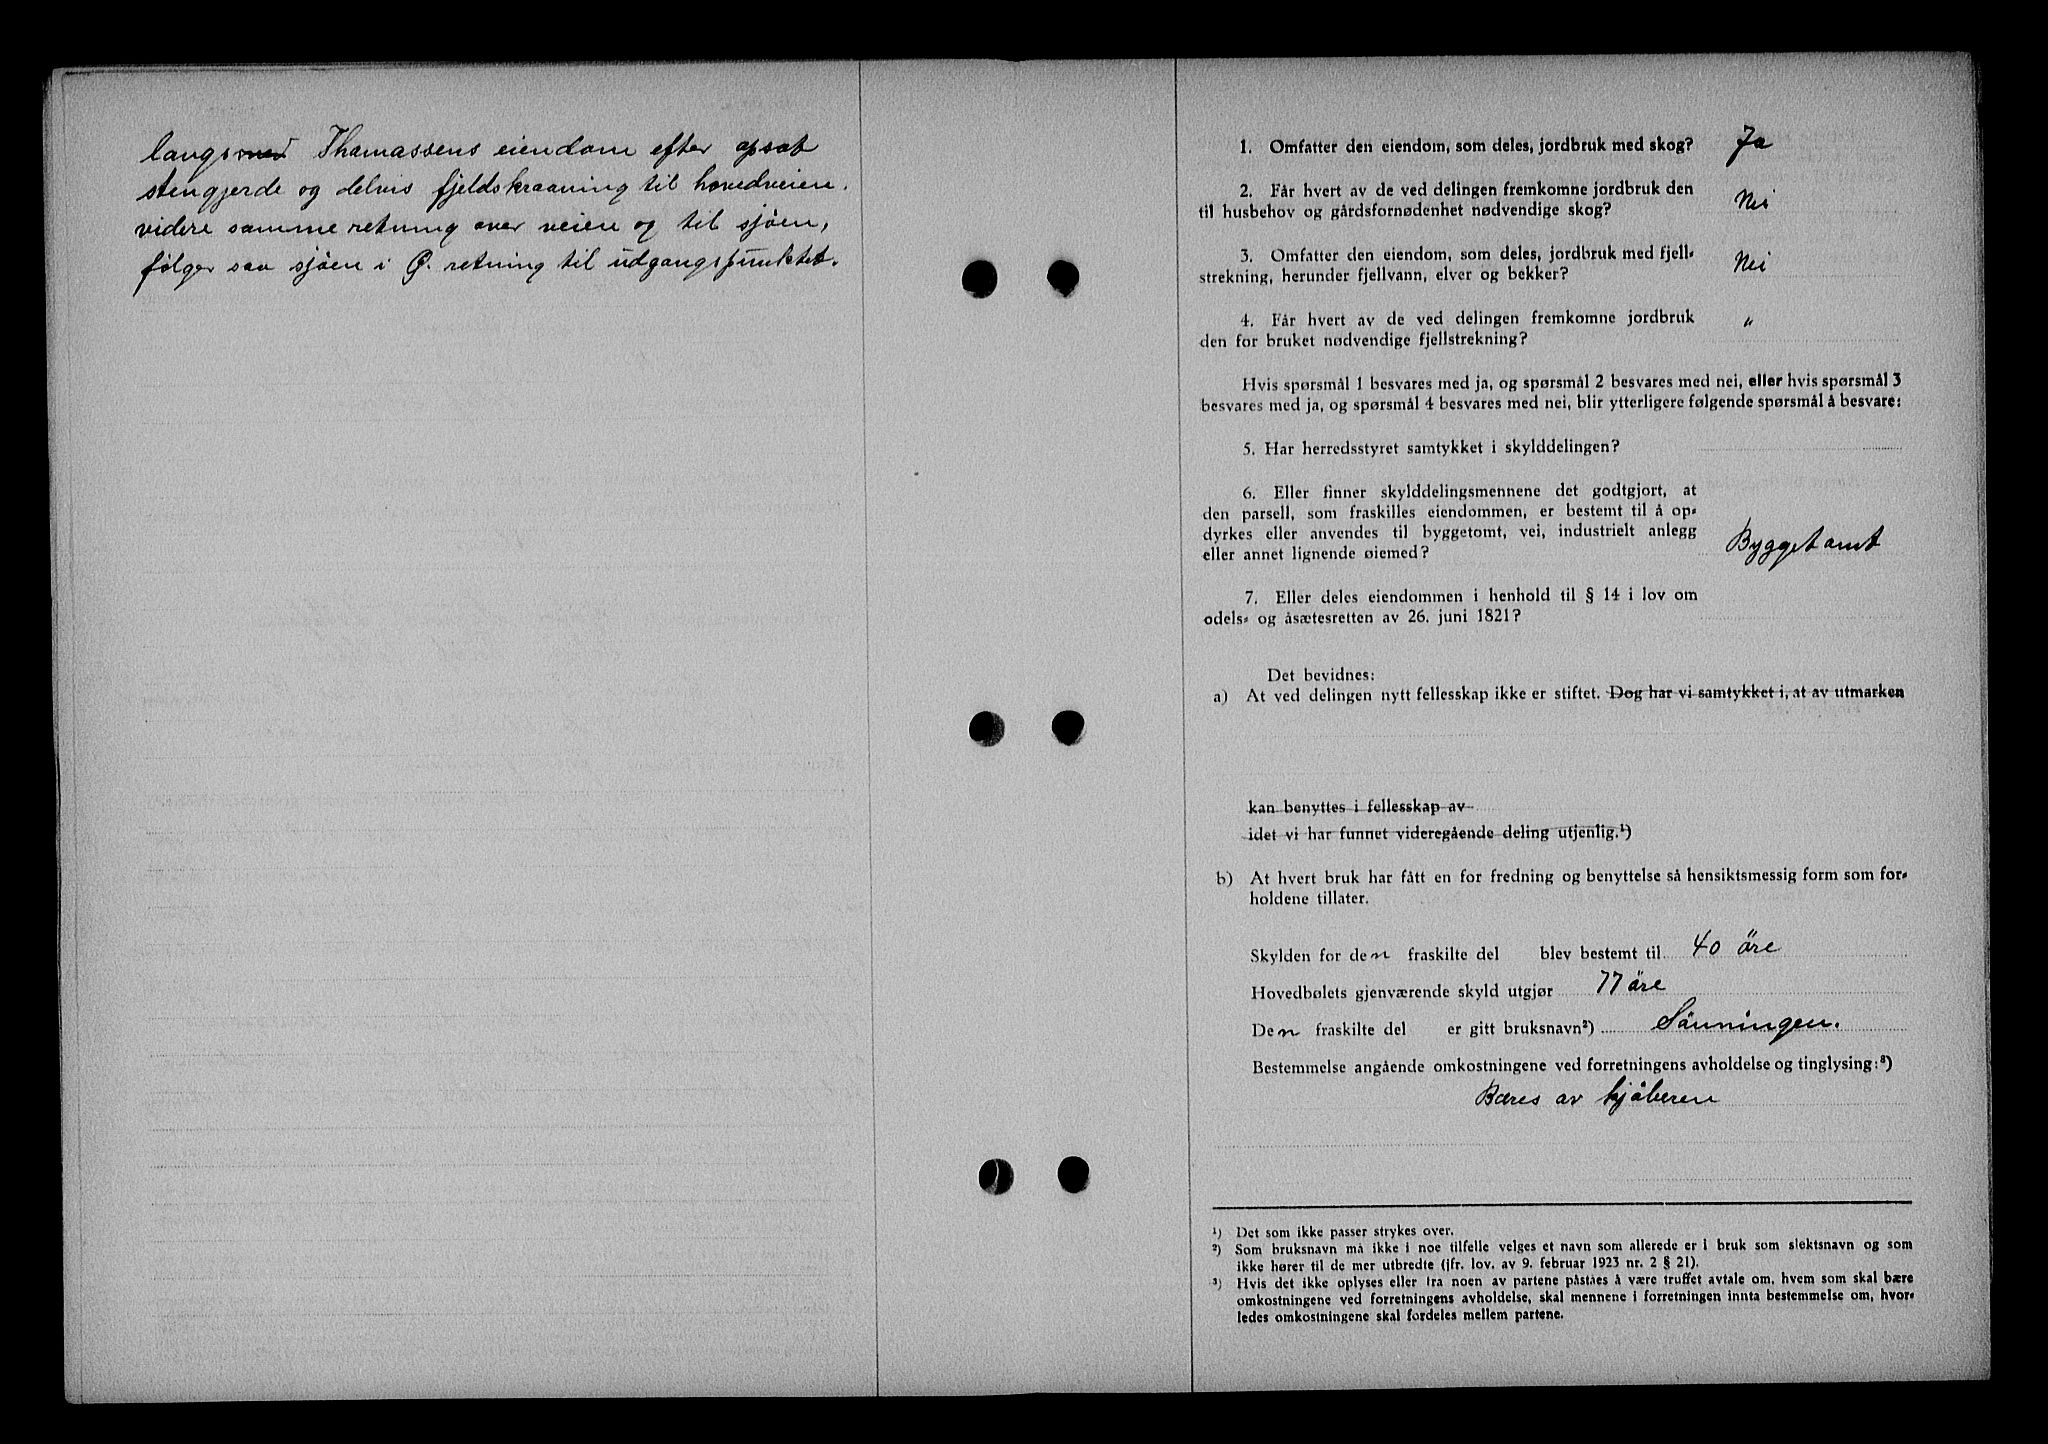 langsmed Thomassens eiendom efter opsat
stengjerde og delvis fjeldskraaning til hovedveien.
videre samme retning over veien og til sjøen,
følger saa sjøen i Ø. retning til udgangspunktet.
1. Omfatter den eiendom, som deles, jordbruk med skog? Ja
2. Får hvert av de ved delingen fremkomne jordbruk den
til husbehov og gårdsfornødenhet nødvendige skog? Nei
3. Omfatter den eiendom, som deles, jordbruk med fjell-
strekning, herunder fjellvann, elver og bekker? Nei
4. Får hvert av de ved delingen fremkomne jordbruk "
den for bruket nødvendige fjellstrekning?
Hvis spørsmål 1 besvares med ja, og spørsmål 2 besvares med nei, eller hvis spørsmål 3
besvares med ja, og spørsmål 4 besvares med nei, blir ytterligere følgende spørsmål å besvare:
5. Har herredsstyret samtykket i skylddelingen?
6. Eller finner skylddelingsmennene det godtgjort, at
den parsell, som fraskilles eiendommen, er bestemt til å op-
dyrkes eller anvendes til byggetomt, vei, industrielt anlegg
eller annet lignende øiemed? Byggetomt
7. Eller deles eiendommen i henhold til § 14 i lov om
odels- og åsætesretten av 26. juni 1821?
Det bevidnes:
a) At ved delingen nytt fellesskap ikke er stiftet. Dog har vi samtykket i, at av utmarken
kan benyttes i fellesskap av
idet vi har funnet videregående deling utjenlig.¹)
b) At hvert bruk har fått en for fredning og benyttelse så hensiktsmessig form som for-
holdene tillater.
Skylden for den fraskilte del blev bestemt til 40 öre
Hovedbølets gjenværende skyld utgjør 77 öre
Den fraskilte del er gitt bruksnavn²) Sönningen.
Bestemmelse angående omkostningene ved forretningens avholdelse og tinglysing:³)
Bæres av kjöberen
¹) Det som ikke passer strykes over.
²) Som bruksnavn må ikke i noe tilfelle velges et navn som allerede er i bruk som slektsnavn og som
ikke hører til de mer utbredte (jfr. lov. av 9. februar 1923 nr. 2 § 21).
³) Hvis det ikke oplyses eller fra noen av partene påståes å være truffet avtale om, hvem som skal bære
omkostningene ved forretningens avholdelse, skal mennene i forretningen innta bestemmelse om, hvor-
ledes omkostningene skal fordeles mellem partene.